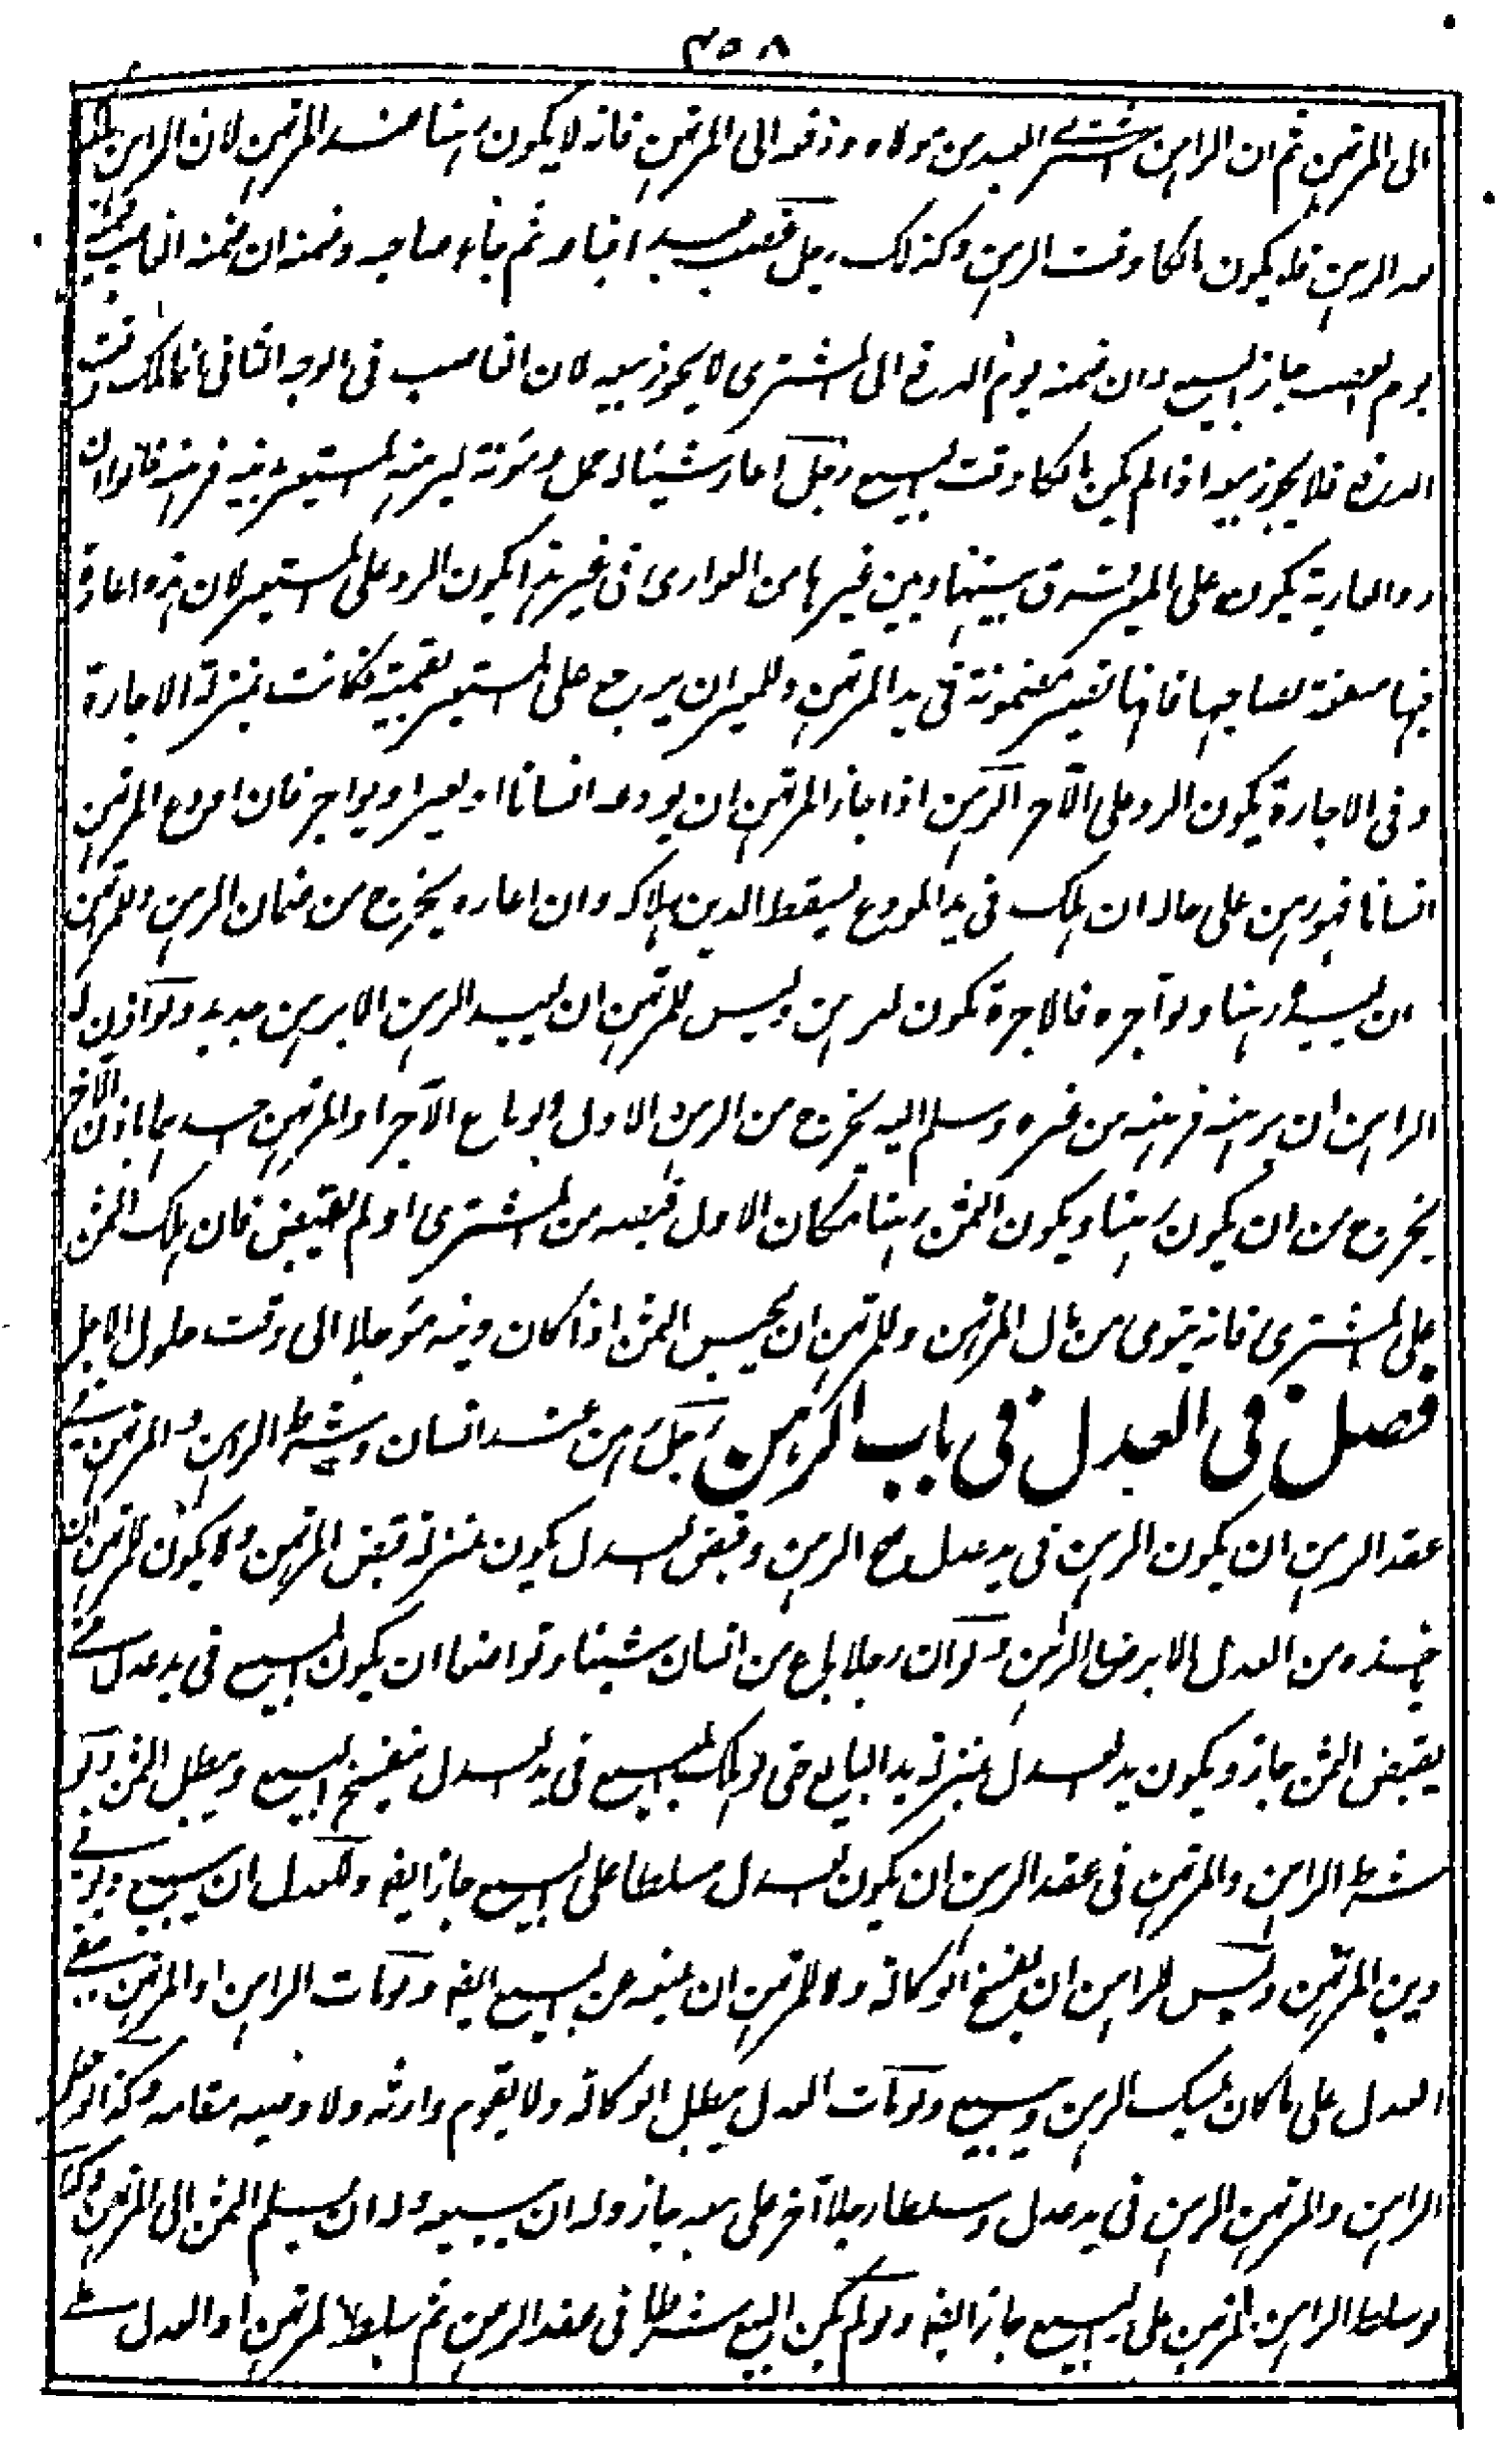 ٣٥٨
الى المرتهن ثم ان الراهن اشترى العبد من مولاه ودفعه الى المرتهن فانه لا يكون رهنا عند المرتهن لان الراهن
الرهن فلا يكون مالكا وقت الرهن وكذلك رجل غصب عبدا فباعه ثم جاء صاحبه وضمنه ان ضمنه الغاصب قيمته
يوم الغصب جاز البيع وان ضمنه يوم الدفع الى المشترى لا يجوز بيعه لان الغاصب فى الوجه الثانى انما ملك وقت
الدفع فلا يجوز بيعه اذا لم يكن مالكا وقت البيع رجل اعار شيئا له حمل ومؤنة ليرهنه المستعير بدينه فرهنه قالوا ان
رد العارية يكون على المعير فرق بينها وبين غيرها من العوارى فى غير هذا يكون الرد على المستعير لان هذه اعارة
فيها منفعة لصاحبها فانها تصير مضمونة فى يد المرتهن وللمعير ان يرجع على المستعير بقيمته فكانت بمنزلة الاجارة
وفى الاجارة يكون الرد على الآجر الراهن اذا اجاز المرتهن ان يودعه انسانا او يعير او يواجر فان اودع المرتهن
انسانا فهو رهن على حاله ان هلك فى يد المودع يسقط الدين بهلاكه وان اعاره يخرج من ضمان الرهن وللمرتهن
ان يسترده رهنا ولو آجره فالاجرة تكون للراهن وليس للمرتهن ان يعيد الرهن الا برهن جديد ولو اذن له
الراهن ان يرهنه فرهنه من غيره وسلم اليه يخرج من الرهن الاول ولو باع الآجر او المرتهن احدهما باذن الآخر
يخرج من ان يكون رهنا ويكون الثمن رهنا مكان الاول قبضه من المشترى او لم يقبض فان هلك الثمن
على المشترى فانه يتوى من مال المرتهن وللمرتهن ان يحبس الثمن اذا كان دينه مؤجلا الى وقت حلول الاجل
فصل فى العدل فى باب الرهن رجل رهن عند انسان وشرط الراهن والمرتهن فى
عقد الرهن ان يكون الرهن فى يد عدل صح الرهن وقبض العدل يكون بمنزلة قبض المرتهن ولا يكون للمرتهن ان
ياخذه من العدل الا برضا الراهن ولو ان رجلا باع من انسان شيئا وتواضعا ان يكون المبيع فى يد عدل حتى
يقبض الثمن جاز ويكون يد العدل بمنزلة يد البايع حتى لو هلك المبيع فى يد العدل ينفسخ البيع ويبطل الثمن ولو
شرط الراهن والمرتهن فى عقد الرهن ان يكون العدل مسلطا على البيع جاز ايضا وللعدل ان يبيع ويوفى
دين المرتهن وليس للراهن ان يفسخ الوكالة ولا للمرتهن ان يمنعه عن البيع ايضا ولو مات الراهن او المرتهن يبقى
العدل على ما كان يمسك الرهن ويبيع ولو مات العدل يبطل الوكالة ولا يقوم وارثه ولا وصيه مقامه وكذا لو جعل
الراهن والمرتهن الرهن فى يد عدل وسلطا رجلا آخر على بيعه جاز وله ان يبيعه وله ان يسلم الثمن الى المرتهن وكذا
لو سلط الراهن المرتهن على البيع جاز ايضا ولو لم يكن البيع شرطا فى عقد الرهن ثم سلط المرتهن او العدل على